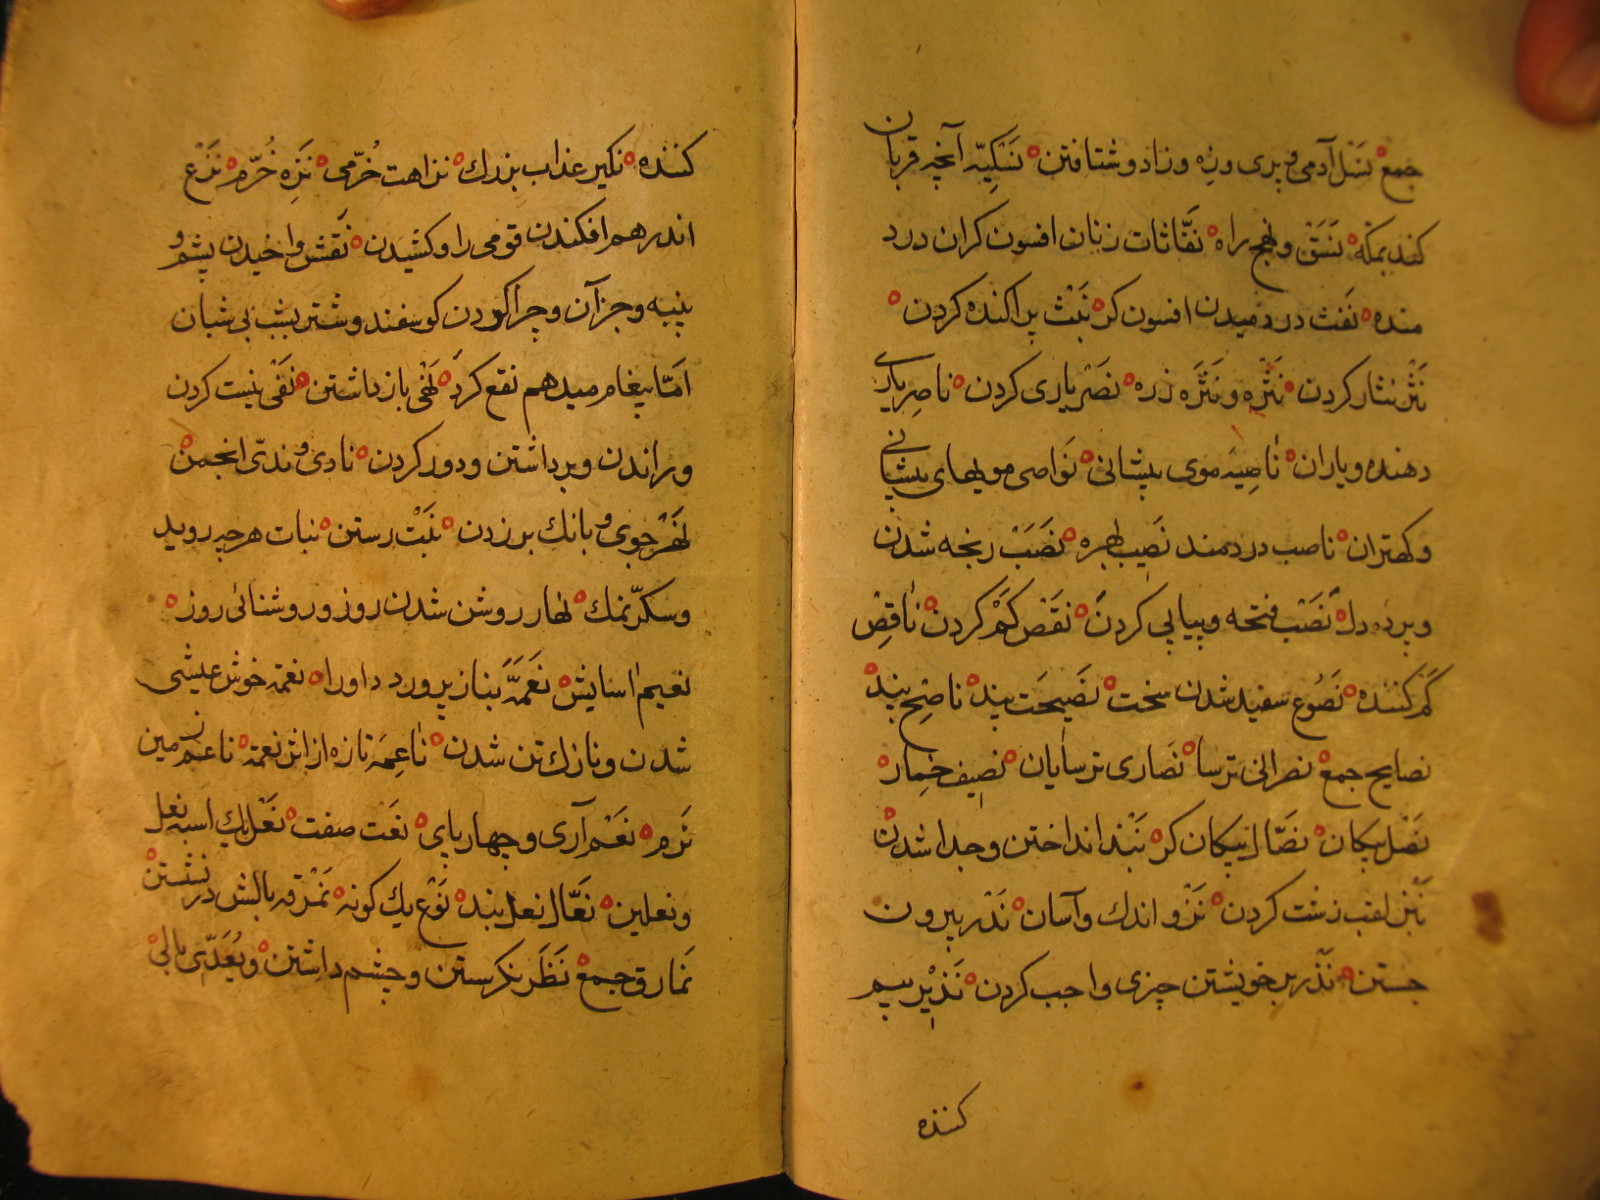 جمع نَسْل آدمی و پری وزه وزاد و شتافتن نَسَکِیّه آنچه قربان
کنند بمکّه نَسَقْ و نهج راه نَفَّاثات زنان افسون کران درد
منده نَفث در دمیدن افسون کر نَبْث پراکنده کردن
نَثْر نثار کردن نَثْرَه و نَثَرَه زره نَصْر یاری کردن ناصِر یاری
دهنده و یاران ناصِیَه موی پیشانی نَواصی مویهای پیشانی
و کهتران ناصب دردمند نَصِیب بهره نَصَبْ رنجه شدن
و برده دل نَصْب فتحه و پیاپی کردن نَقْص کم کردن ناقِص
کم کننده نَصُوع سفید شدن سخت نَصِیحَت پند ناصِح پند
نصایح جمع نصرانی ترسا نَصاری ترسایان نَصِیف خمار
نَصْل پیکان نَصّال پیکان کر نَبْذ انداختن و جدا شدن
نَبْز لقب زشت کردن نَزْو اندک و آسان نَدْر بیرون
جستن نَذْر بر خویشتن چیزی واجب کردن نَذِیْر بیم
کننده
کننده نکیر عذاب بزرك نزاهت خُرّمی نَزِه خُرّم نَزْع
اندر هم افکندن قومی را و کشیدن نَفَش واخیدن پشم و
پنبه و جز آن و چرا کردن کوسفند و شتر بشب بی شبان
امّا پیغام میدهم نقع کرد نَهْی باز داشتن نَفْی نیست کردن
و راندن و برداشتن و دور کردن نادی و ندیّ انجمن
نَهْر جوی و بانك بر زدن نَبْت رستن نبات هر چه روید
و سکّر نمك نهار روشن شدن روز و روشنائی روز
نعیم اسایش نَعَّمَهٗ بناز پرورد او را نعمة خوش عیشی
شدن و نازك تن شدن ناعِمَه تازه از اثر نعمة ناعم زمین
نَرم نَعَم آری و چهارپای نَعْت صفت نَعْل یك اسبه نعل
و نعلین نَعّال نعل بند نَوْع یك کونه نَمْرقه بالش در نشستن
نَمارق جمع نَظَر نکرستن و چشم داشتن و یُعَدّی بالی